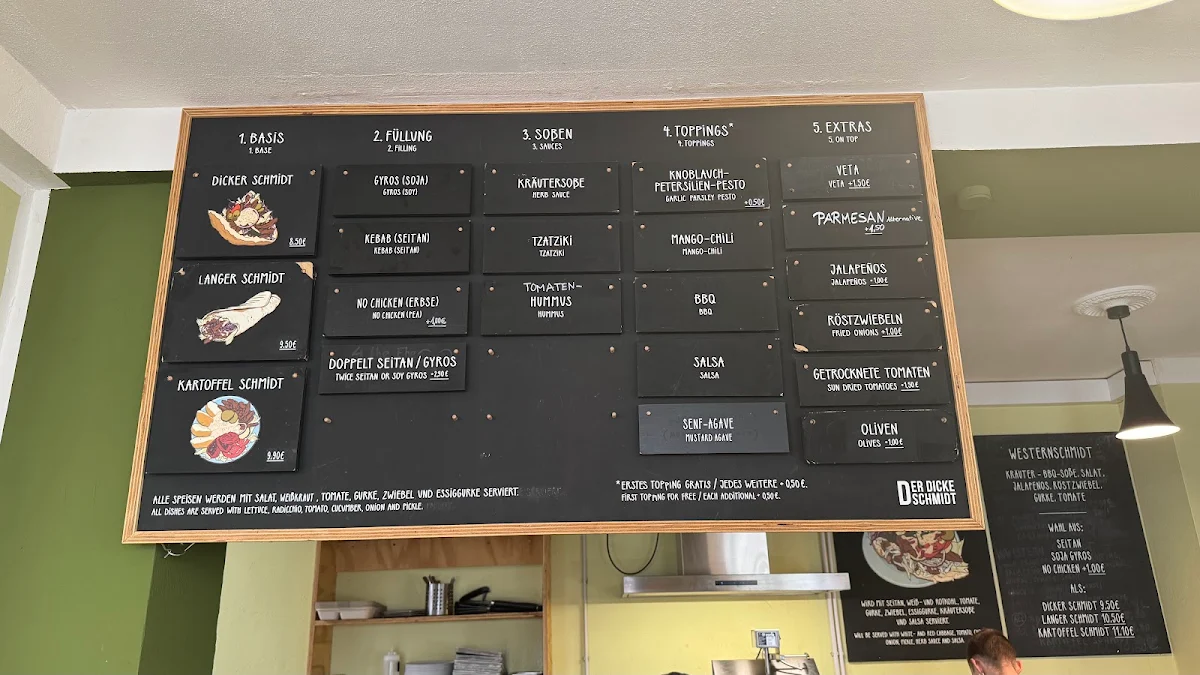 1. BASIS
1. BASE
DICKER SCHMIDT
8.50€
LANGER SCHMIDT
9.50€
KARTOFFEL SCHMIDT
9.90€
2. FÜLLUNG
2. FILLING
GYROS (SOJA)
GYROS (SOY)
KEBAB (SEITAN)
KEBAB (SEITAN)
NO CHICKEN (ERBSE)
NO CHICKEN (PEA)
+1,00€
DOPPELT SEITAN / GYROS
TWICE SEITAN OR SOY GYROS +2,90€
3. SOßEN
3. SAUCES
KRÄUTERSOßE
HERB SAUCE
TZATZIKI
TZATZIKI
TOMATEN-
HUMMUS
HUMMUS
4. TOPPINGS*
4. TOPPINGS
KNOBLAUCH-
PETERSILIEN-PESTO
GARLIC PARSLEY PESTO
+0,50€
MANGO-CHILI
MANGO-CHILI
BBQ
BBQ
SALSA
SALSA
SENF-AGAVE
MUSTARD AGAVE
5. EXTRAS
5. ON TOP
VETA
VETA +1,50€
PARMESAN Alternative
+1,50
JALAPEÑOS
JALAPEÑOS +1,00€
RÖSTZWIEBELN
FRIED ONIONS +1,00€
GETROCKNETE TOMATEN
SUN DRIED TOMATOES +1,50€
OLIVEN
OLIVES +1,00€
ALLE SPEISEN WERDEN MIT SALAT, WEIßKRAUT, TOMATE, GURKE, ZWIEBEL UND ESSIGGURKE SERVIERT.
ALL DISHES ARE SERVED WITH LETTUCE, RADICCHIO, TOMATO, CUCUMBER, ONION AND PICKLE.
*ERSTES TOPPING GRATIS / JEDES WEITERE + 0,50€.
FIRST TOPPING FOR FREE / EACH ADDITIONAL + 0,50€.
DER DICKE
SCHMIDT
WIRD MIT SEITAN, WEIß- UND ROTKOHL, TOMATE,
GURKE, ZWIEBEL, ESSIGGURKE, KRÄUTERSOßE
UND SALSA SERVIERT.
WILL BE SERVED WITH WHITE- AND RED CABBAGE, TOMATO,
ONION, PICKLE, HERB SAUCE AND SALSA
WESTERNSCHMIDT
KRÄUTER - BBQ-SOßE, SALAT,
JALAPEÑOS, RÖSTZWIEBEL,
GURKE, TOMATE
WAHL AUS:
SEITAN
SOJA GYROS
NO CHICKEN +1,00€
ALS:
DICKER SCHMIDT 9,50€
LANGER SCHMIDT 10,50€
KARTOFFEL SCHMIDT 11,10€